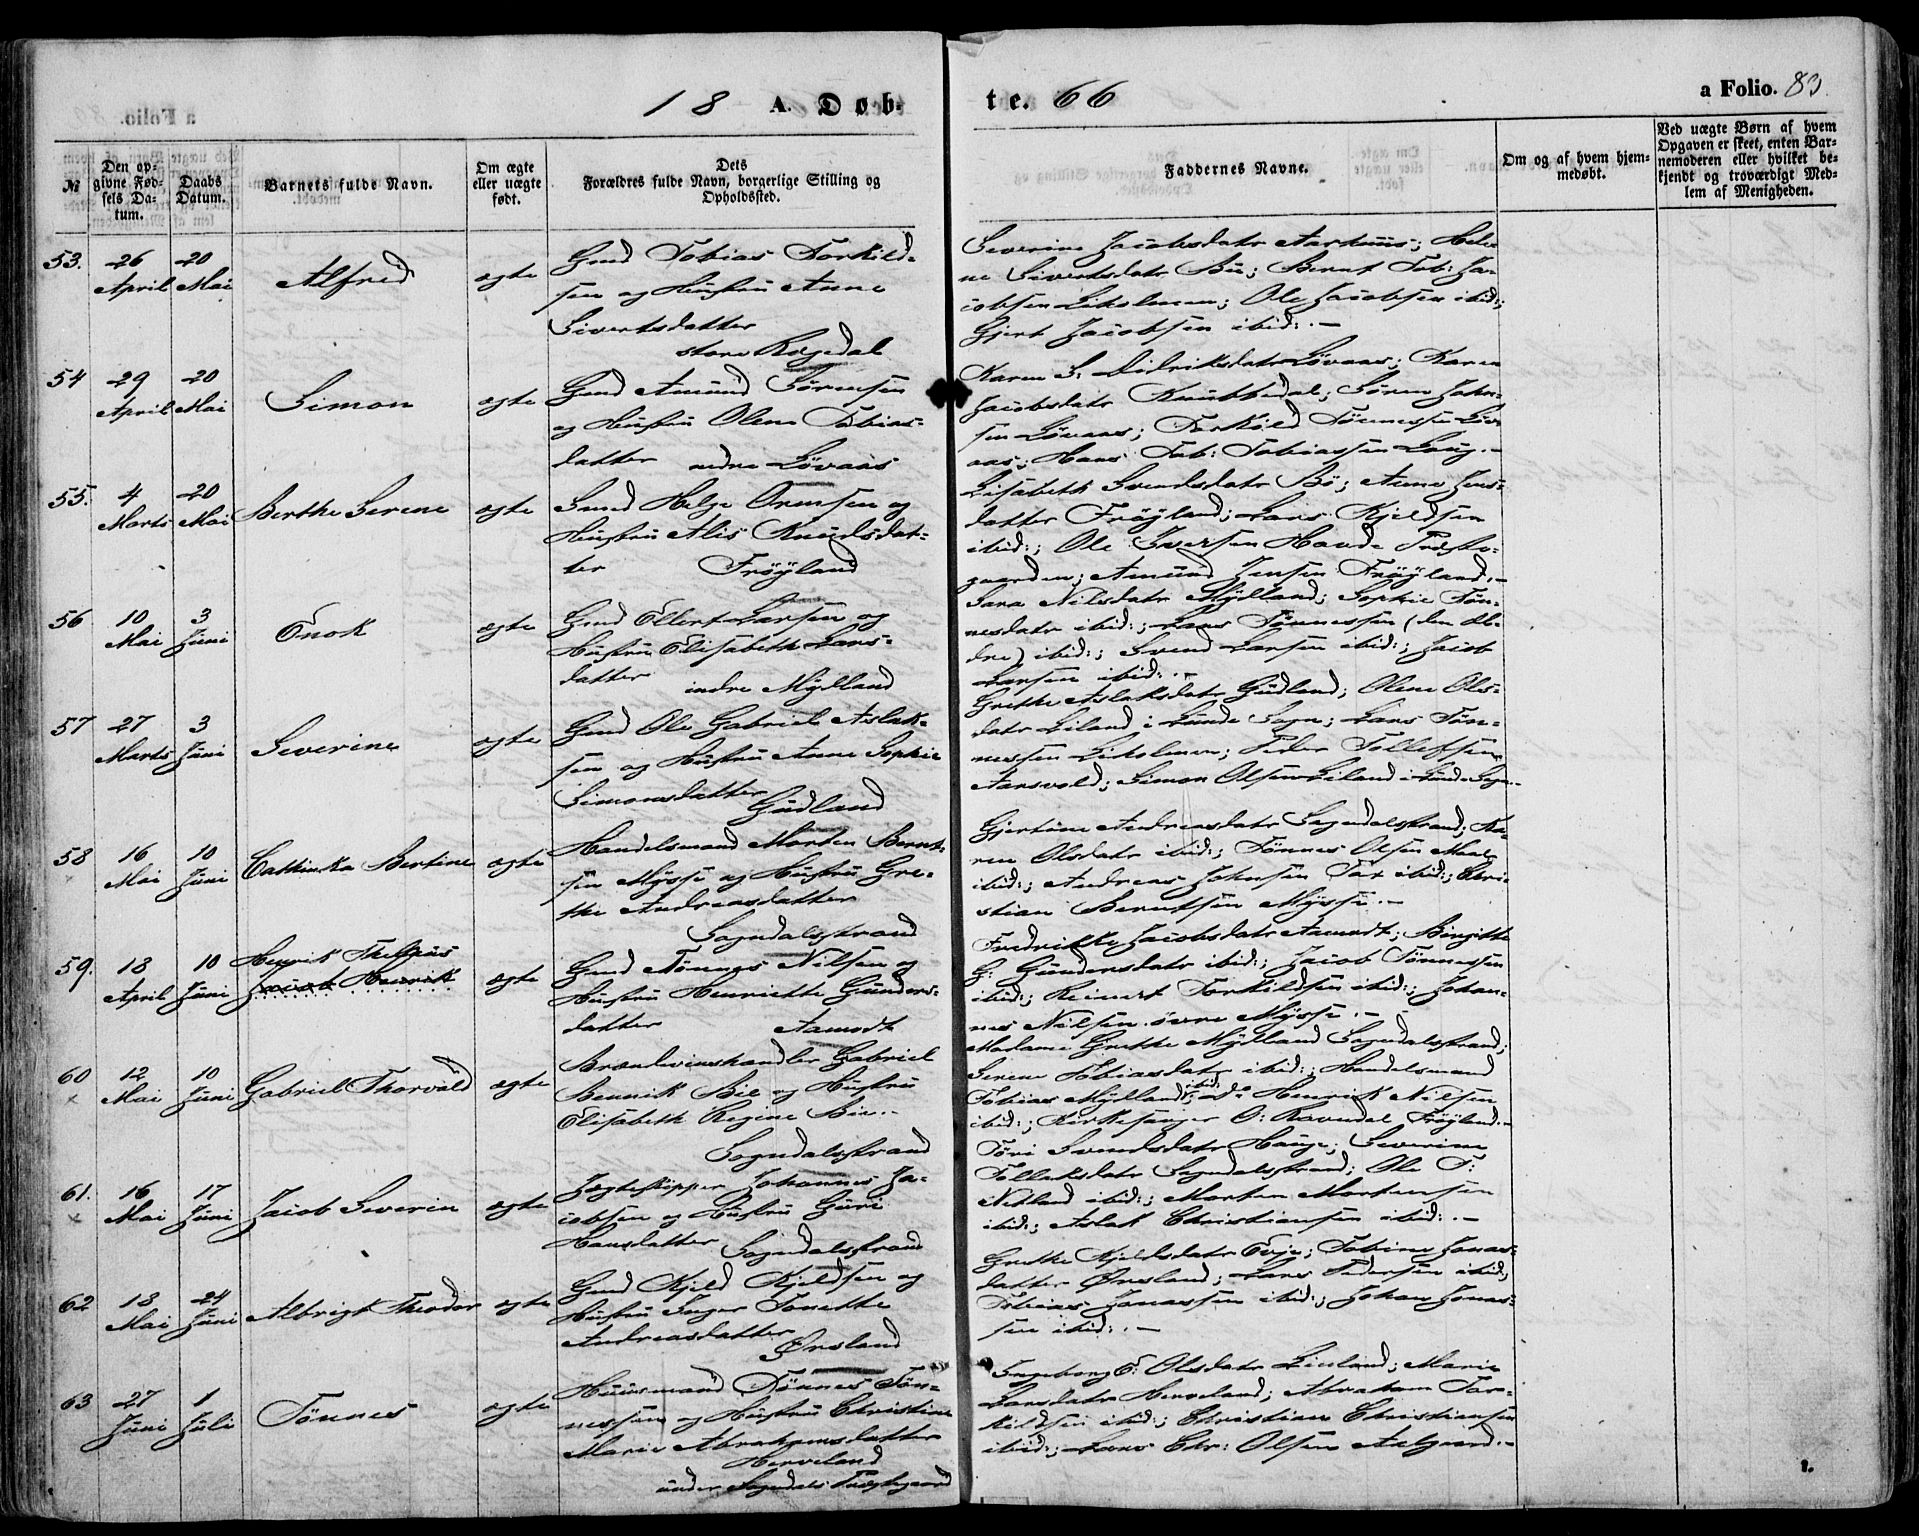 18 A. Døb-
te. 66
a Folio. 83.
№
Den op-
givne Fød-
sels Da-
tum.
Daabs
Datum.
Barnets fulde Navn.
Om ægte
eller uægte
født.
Dets
Forældres fulde Navn, borgerlige Stilling og
Opholdssted.
Faddernes Navne.
Om og af hvem hjem-
medøbt.
Ved uægte Børn af hvem
Opgaven er skeet, enten Bar-
nemoderen eller hvilket be-
kjendt og troværdigt Med-
lem af Menigheden.
53. 26 April 20 Mai Alfred ægte
Gmd Tobias Torkild-
sen og Hustru Anne
Sivertsdatter
store Rægedal
Severine Jacobsdatr Aarhuus; Hele-
ne Sivertsdatr Bü; Bernt Tob: Ja-
cobsen Liholmen; Ole Jacobsen ibid:;
Gjert Jacobsen ibid:.-
54 29 April 20 Mai Simon ægte
Gmd Amund Sørensen
og Hustru Olene Tobias-
datter nedre Løvaas
Karen S: Didriksdatr Løvaas; Karen
Jacobsdatr Knubbedal; Søren John-
sen Løvaas; Torkild Tønnessen Løv-
aas; Hans Tob: Tobiassen Laug.-
55. 4 Marts 20 Mai Berthe Serene ægte
Smed Helge Ormsen og
Hustru Alis Knudsdat-
ter Frøyland
Lisabeth Svendsdatr Bö; Anne Jens-
datter Fröyland; Lars Kjeldsen
ibid:; Ole Iversen Hovde Præste-
gaarden; Amund Jensen Frøyland.-
56 10 Mai 3 Juni Enok ægte
Gmd Ellert Larsen og
Hustru Elisabeth Lars-
datter indre Mydland
Sara Nilsdatr Mydland; Sophie Tøn-
nesdatr ibid:; Lars Tønnessen (den æl-
dre) ibid:; Svend Larsen ibid:; Jacob
Larsen ibid:.-
57 27 Marts 3 Juni Severine ægte
Gmd Ole Gabriel Aslak-
sen og Hustru Anne Sophie
Simonsdatter
Gudland
Grethe Aslaksdatr Gudland; Olene Ols-
datr Eiland i Lunde Sogn; Lars Tøn-
nessen Liholmen; Peder Tollefsen
Aarsvold; Simon Olsen Eiland i Lunde Sogn.-
58 16 Mai 10 Juni Cathinka Bertine ægte
Handelsmand Morten Bernt-
sen Mysse og Hustru Gre-
the Andreasdatter
Sogndalsstrand
Gjertine Andreasdatr Sogndalsstrand; Ka-
ren Olsdatr ibid:; Tønnes Olsen
ibid:; Andreas Johnsen ibid:; Chri-
stian Berntsen Mysse.-
59. 18 April 10 Juni Henrik
Jacob Henrik ægte
Gmd Tønnes Nilsen og
Hustru Henriette Gunders-
datter Aamodt
Fredrikke Jacobsdatr Aamodt; Birgitte
G: Gundersdatr ibid:; Jacob Tønnessen
ibid:; Reinert Torkildsen ibid:; Johan-
nes Nilsen øvre Mysse.-
60 12 Mai 10 Juni Gabriel Thorvald ægte
Brændevinshandler Gabriel
Bennik Bie og Hustru
Elisabeth Regine Bie.-
Sogndalsstrand
Madame Grethe Mydland Sogndalsstrand;
Serene Tobiasdatr ibid:; Handelsmand
Tobias Mydland ibid:; do Henrik Nilsen
ibid:; Kirkesanger O: Ravndal Frøyland.-
61. 16 Mai 17 Juni Jacob Severin ægte
Jagteskipper Johannes Ja-
cobsen og Hustru Guri
Hansdatter Sogndalsstrand
Tori Svendsdatr Hauge; Severine
Tollaksdatr Sogndalsstrand; Ole T:
Netland ibid:; Morten Mortensen
ibid:; Aslak Christiansen ibid:.-
62 18 Mai 24 Juni Albrigt Theodor ægte
Gmd Kjeld Kjeldsen og
Hustru Inger Tonette
Andreasdatter
Ørsland
Grethe Kjeldsdatr Evje; Tobine Jonas-
datter Ørsland; Lars Pedersen ibid;
Tobias Jonassen ibid:; Johan Jonas-
sen ibid:.-
63 27 Juni 1 Juli Tønnes ægte
Huusmand Tønnes Tøn-
nessen og Hustru Christine
Marie Abrahamsdatter
Herveland
under Sogndals Præstegaard
Ingeborg E: Olsdatr Linland; Marie
Larsdatr Herveland; Abraham Tor-
kildsen ibid:; Christian Christiansen
ibid:; Lars Chr: Olsen Aalgaard.-